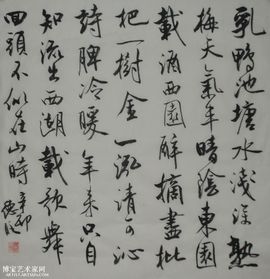 乳鴨池塘水淺深熟
梅天氣半晴陰東園
載酒西園醉摘盡枇
杷一樹金一泓清可沁
詩脾冷暖年來只自
知流出西湖載歌舞
回頭不似在山時
辛卯